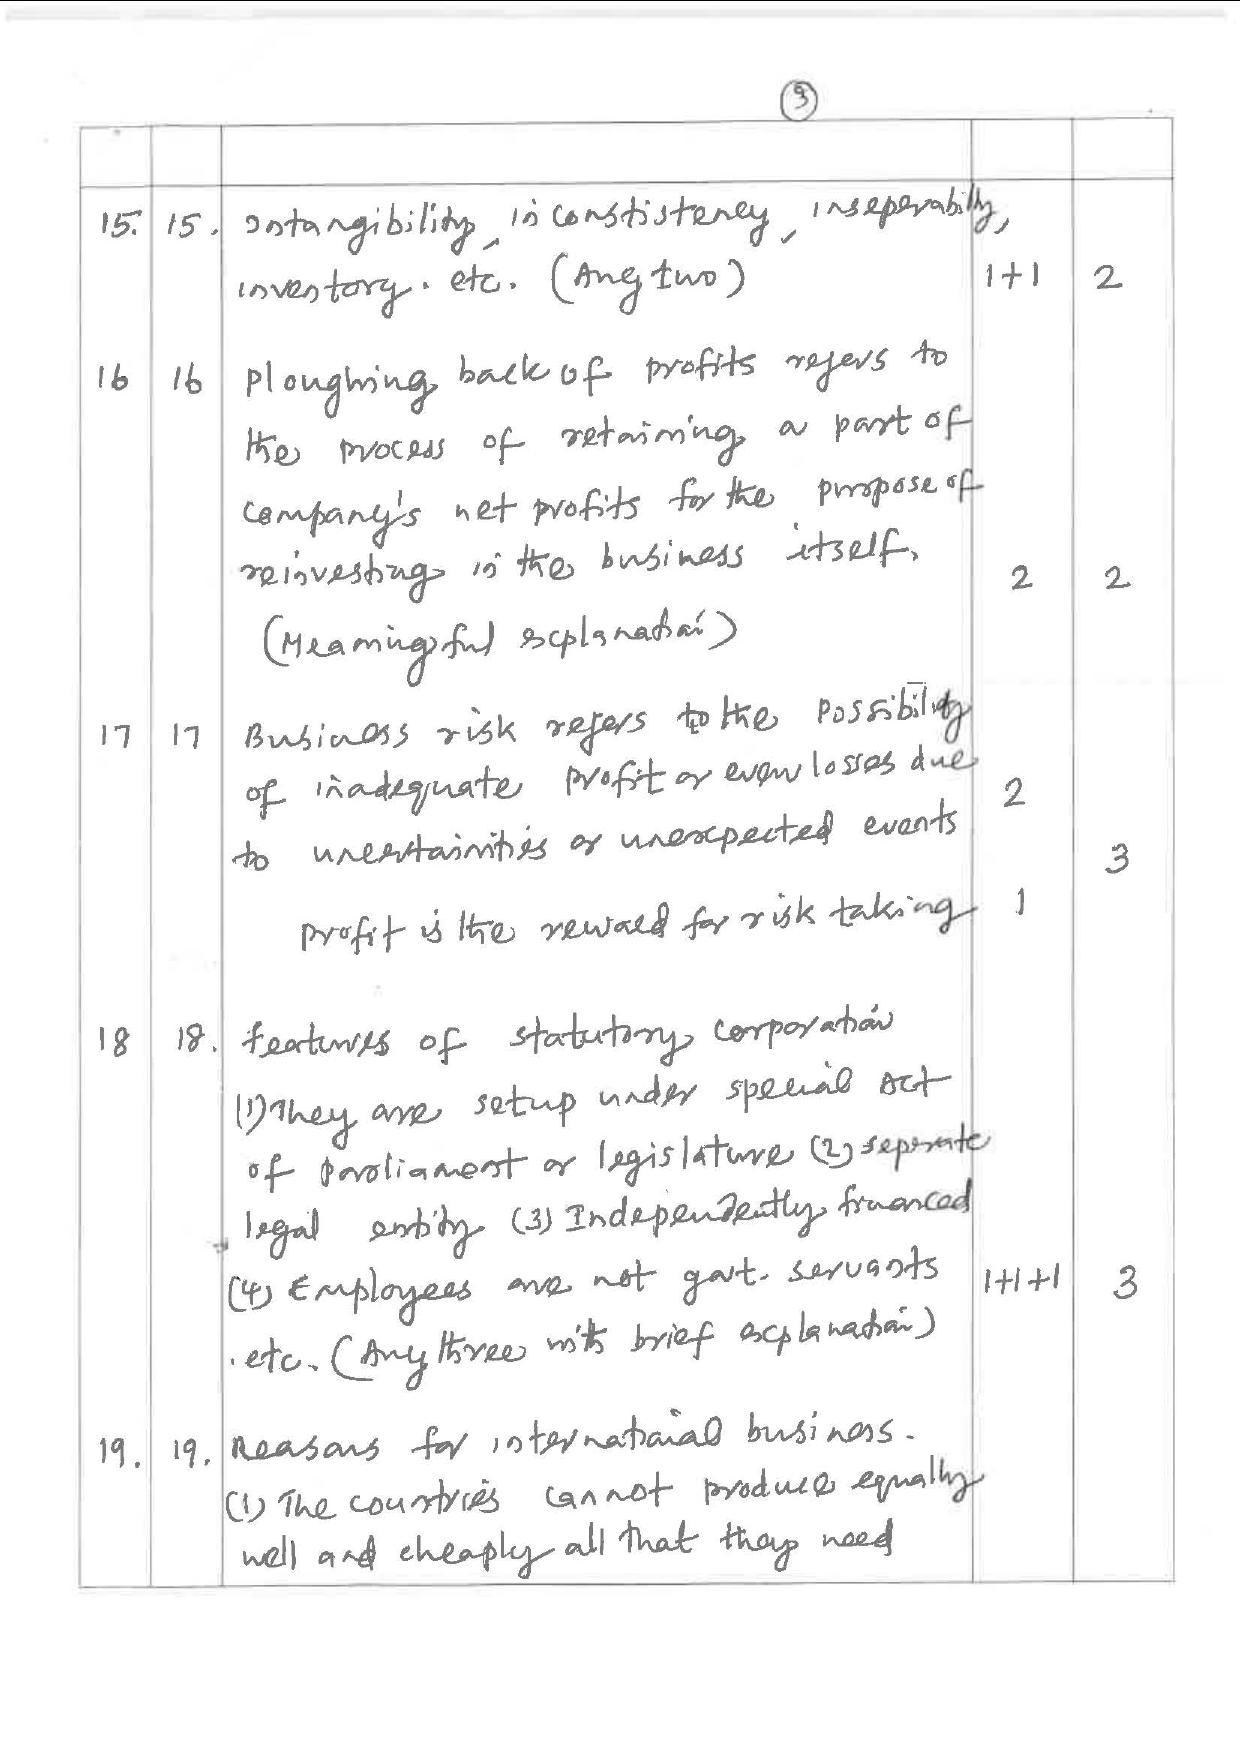 3
15. 15. Intangibility, inconstistency, inseperability,
inventory. etc. (Any two) 1+1 2
16 16 Ploughing back of profits refers to
the process of retaining a part of
company's net profits for the purpose of
reinvesting in the business itself.
2 2
(Meaningful explanation)
17 17 Business risk refers to the possibility
of inadequate profit or even losses due
2
to uncertainities or unexpected events
3
profit is the reward for risk taking 1
18 18. features of statutory corporation
(1) They are setup under special Act
of parliament or legislature (2) seperate
legal entity (3) Independently financed
(4) Employees are not govt. servants 1+1+1 3
etc. (Any three with brief explanation)
19. 19. Reasons for international business.
(1) The countries cannot produce equally
well and cheaply all that they need